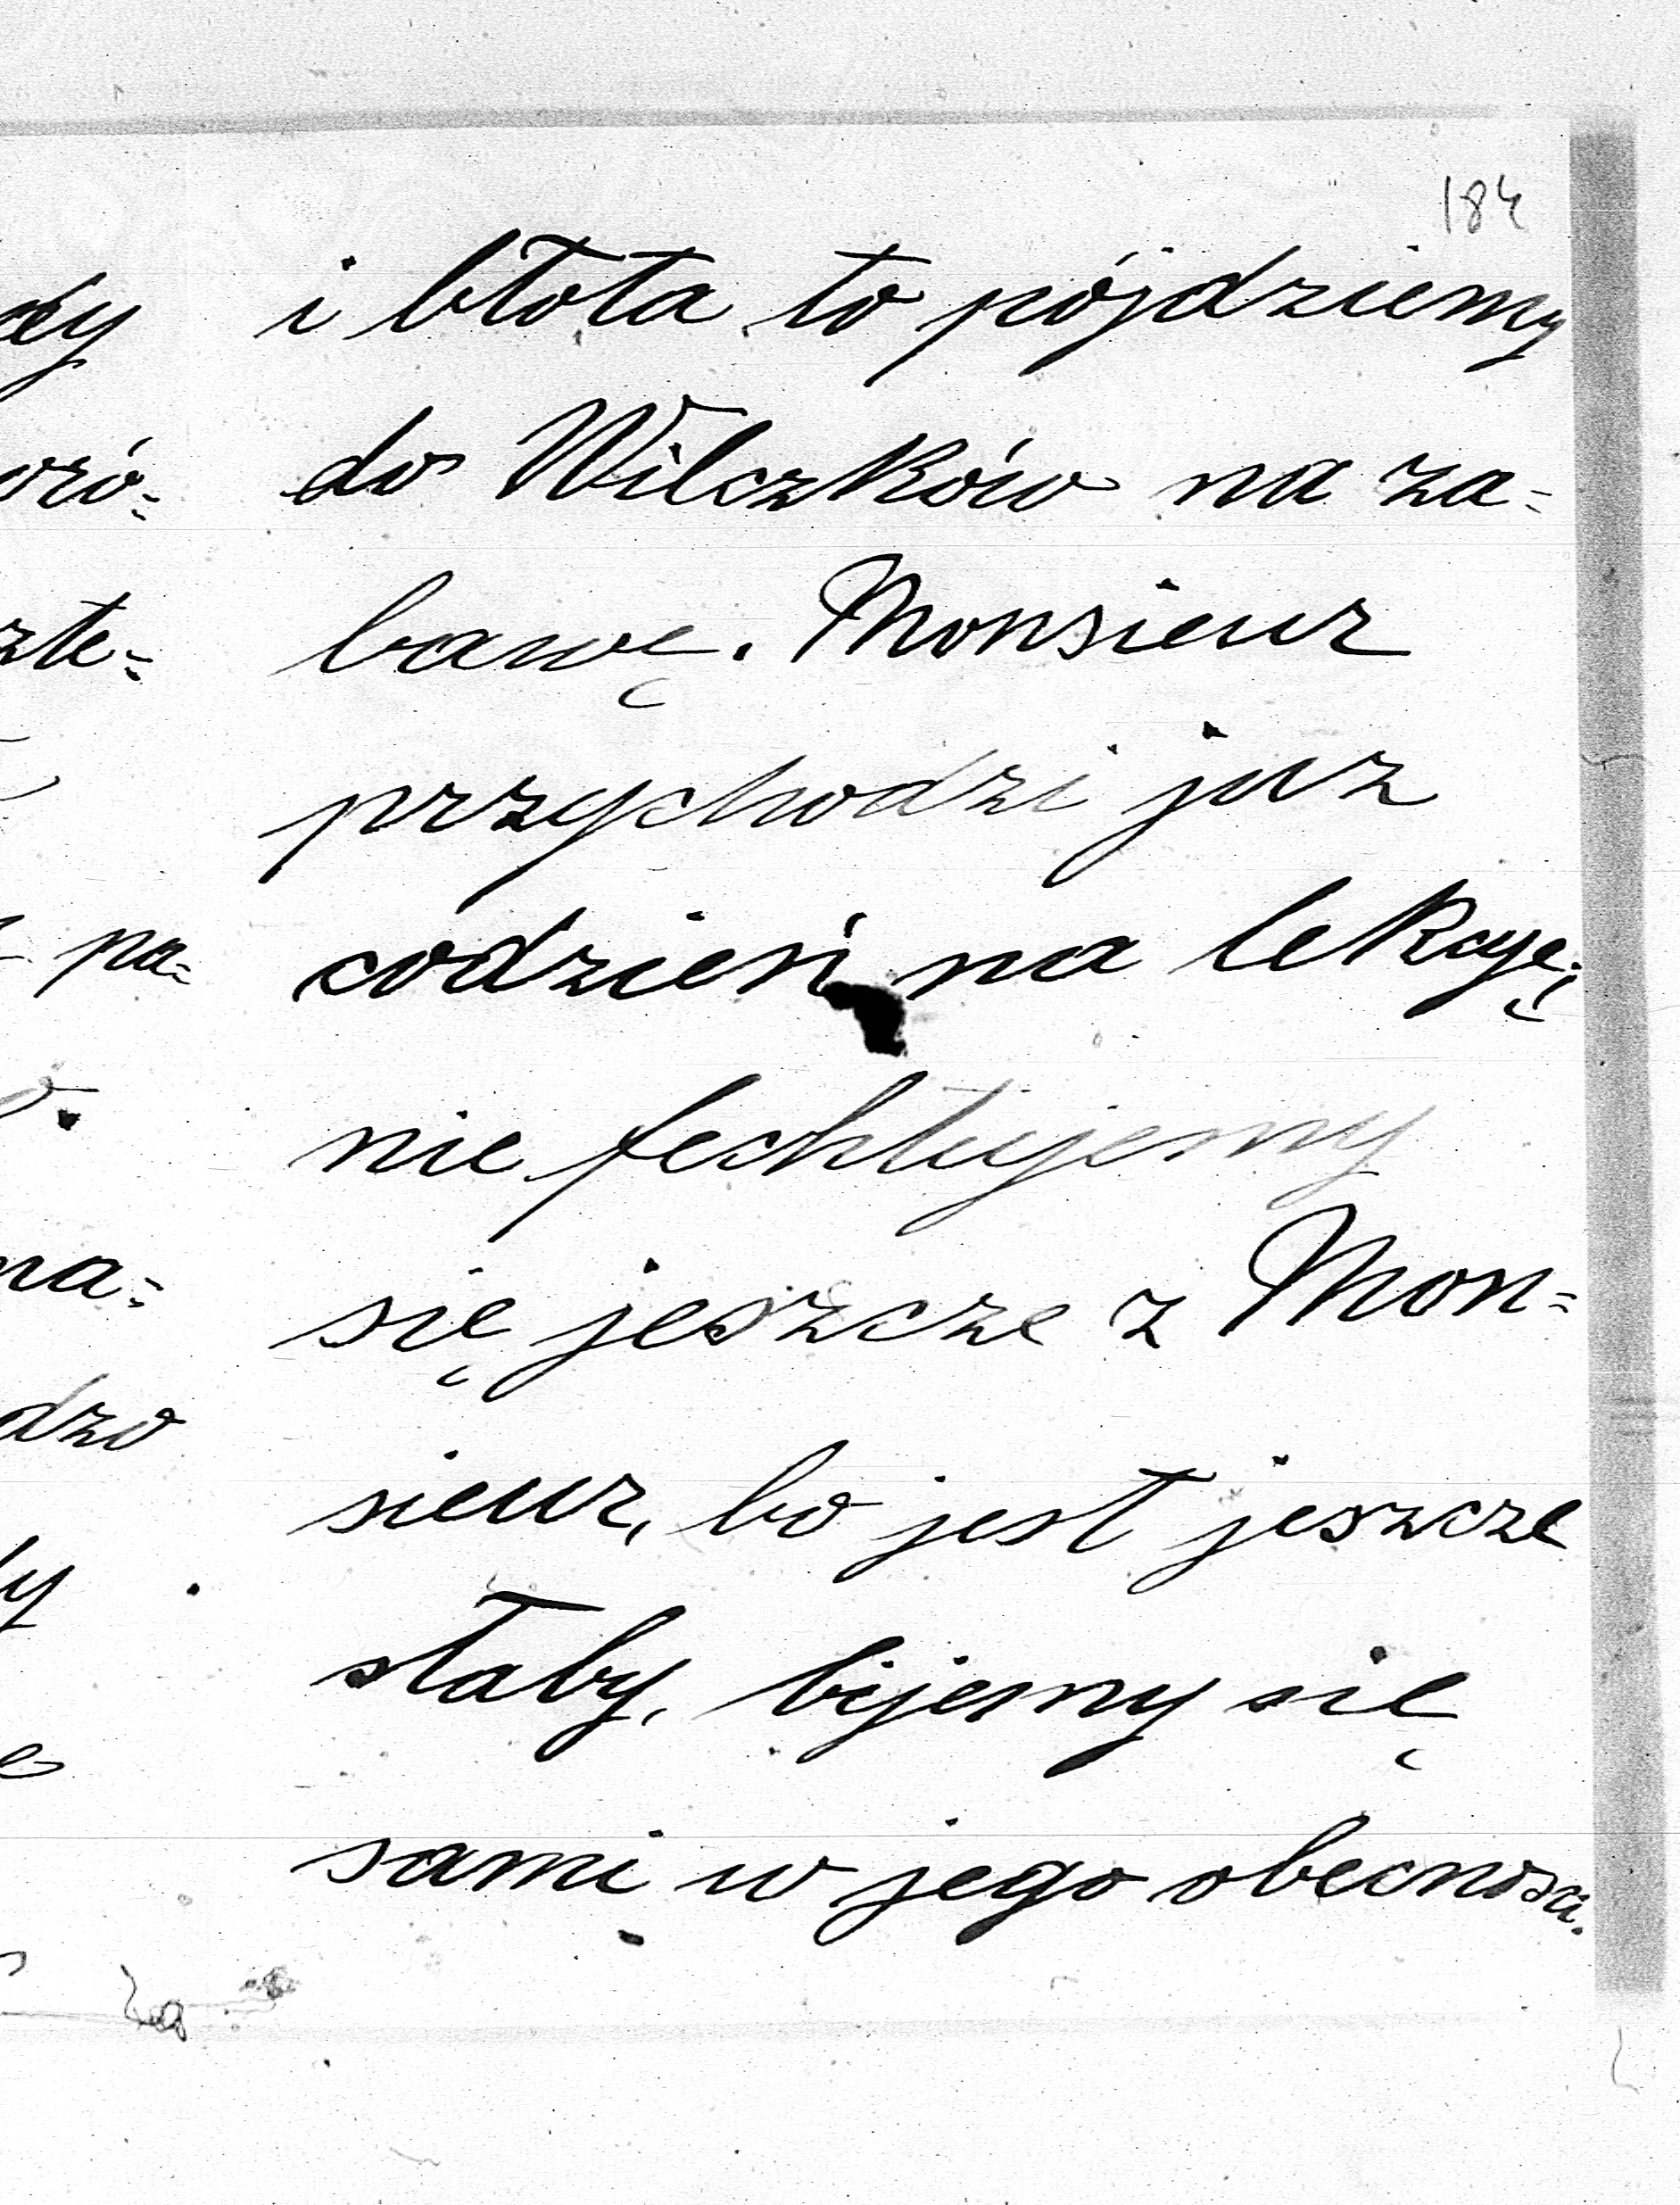 184
i błota to pójdziemy
do Wilczków na za=
bawę. Monsieur
przychodzi juz
codzień na lekcye;
nie fechtujemy
się jeszcze z Mon=
sieur, bo jest jeszcze
słaby, bijemy się
sami w jego obecności.